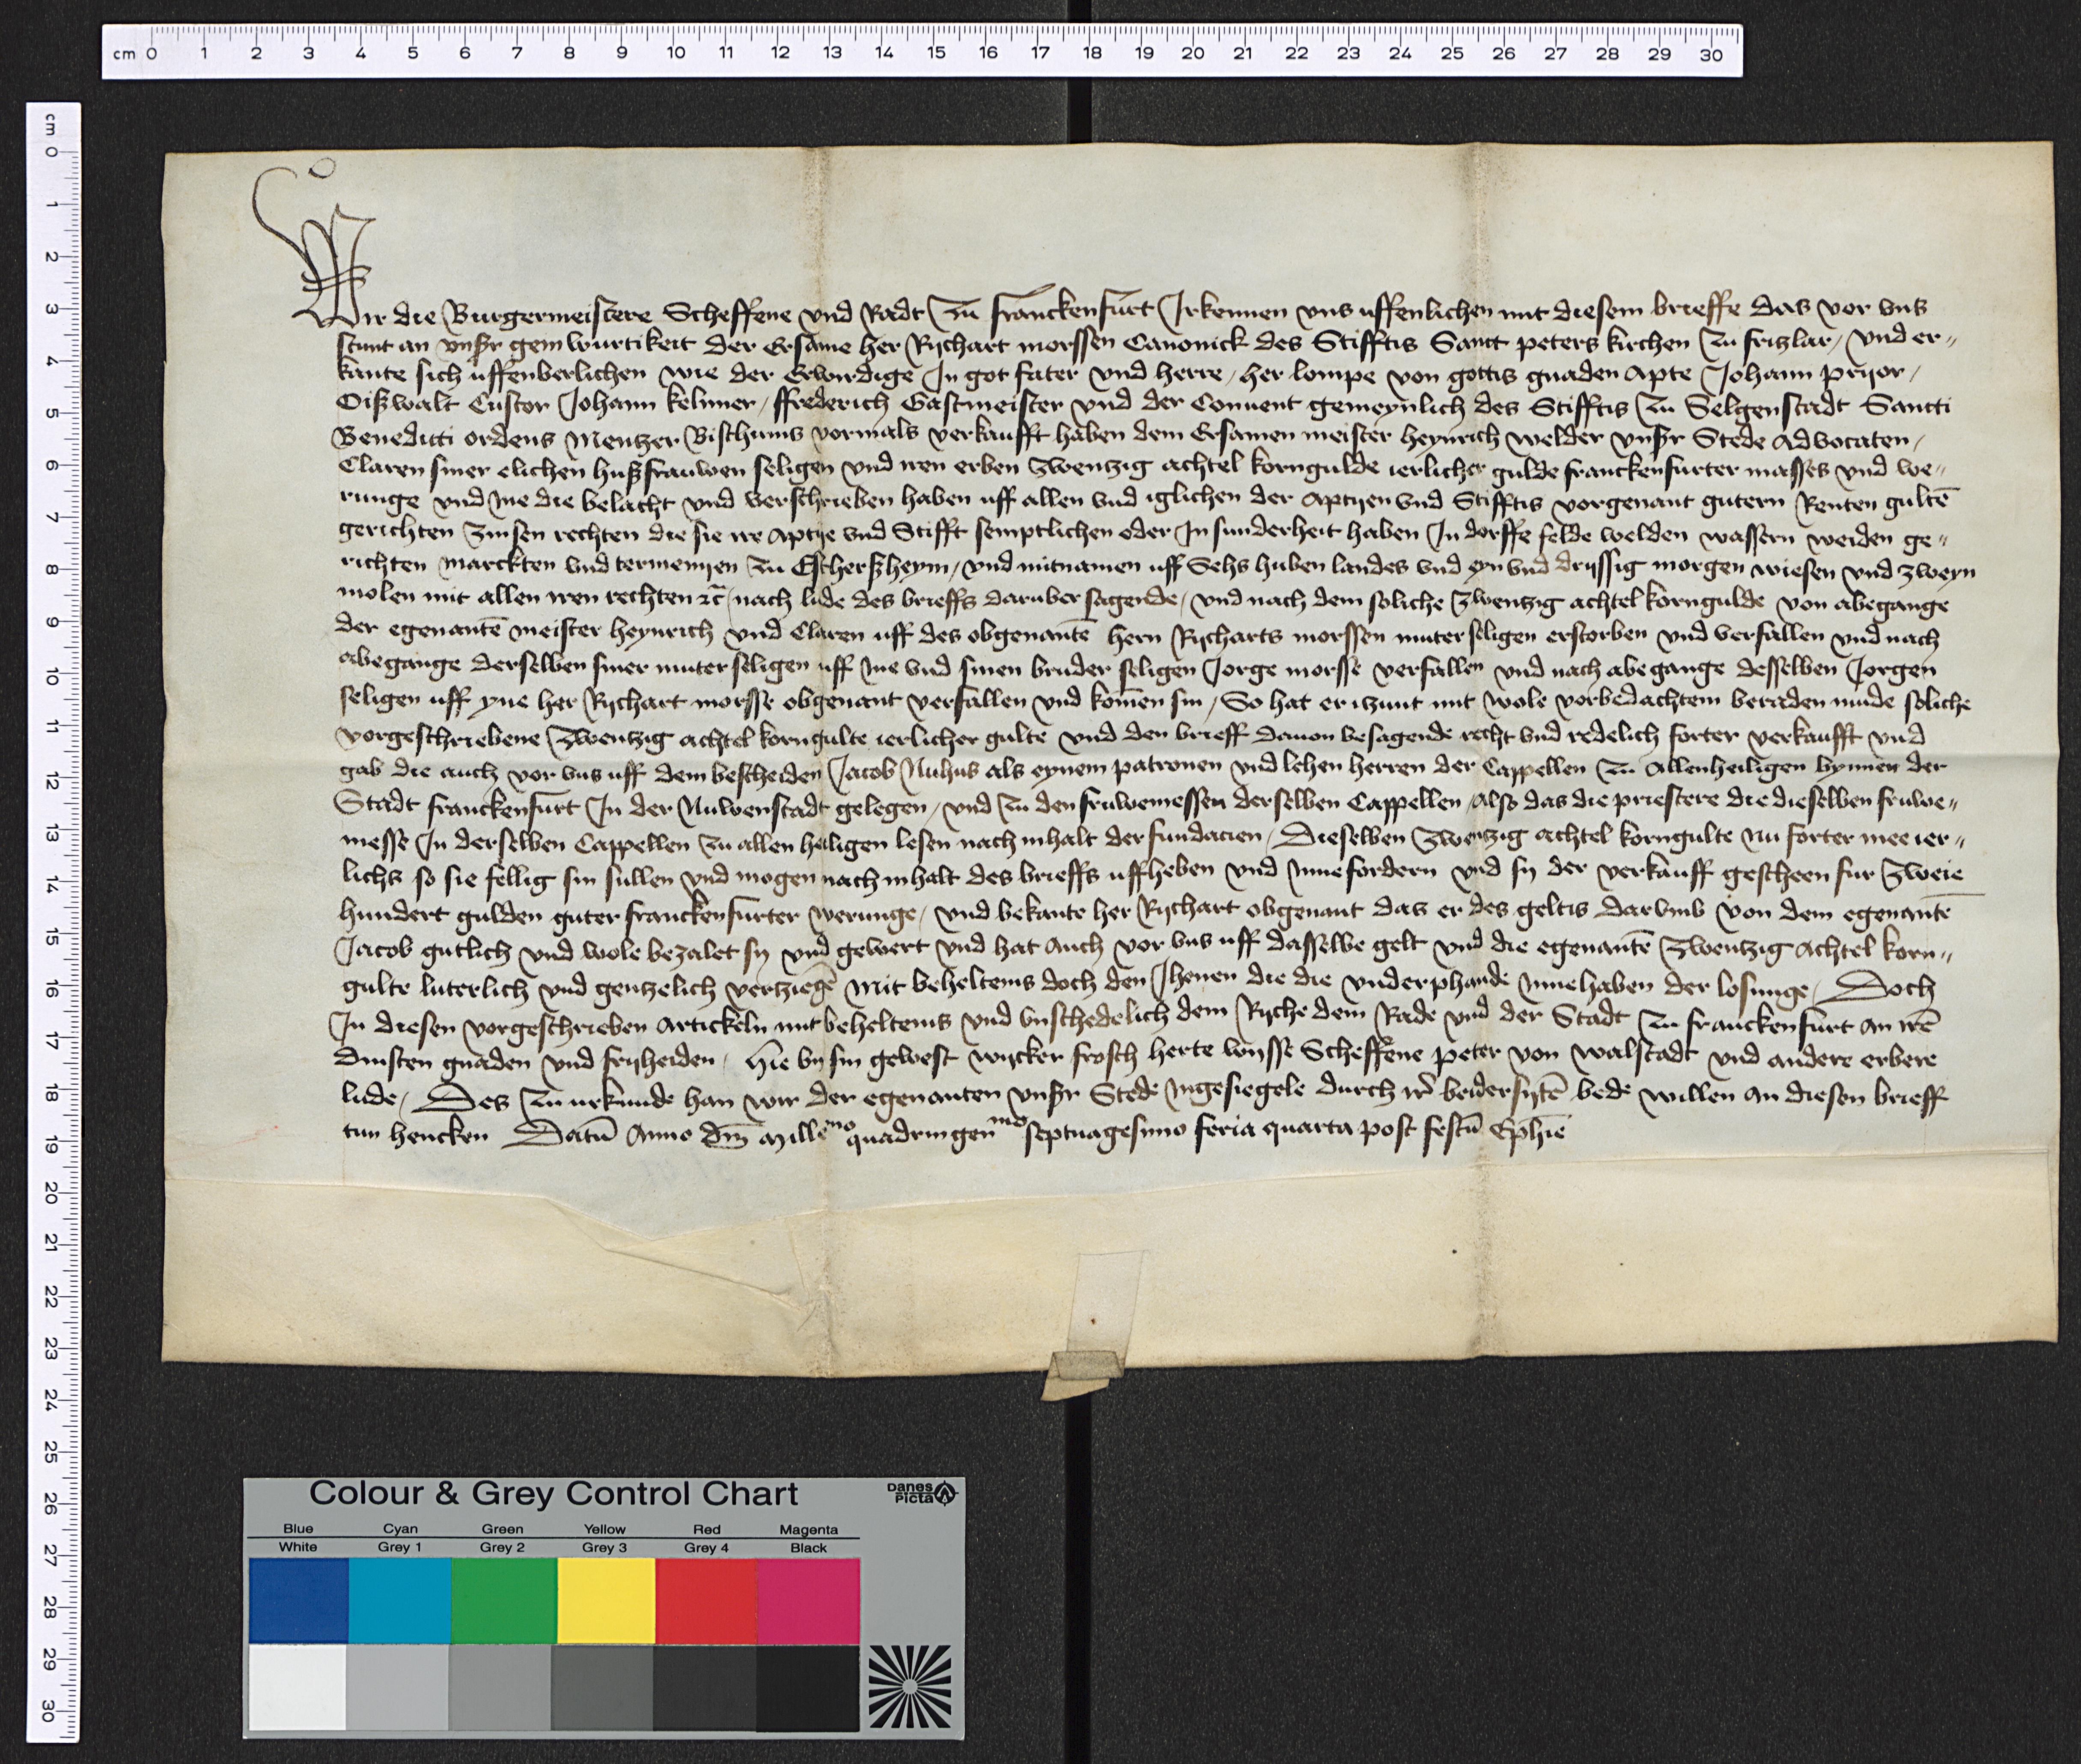 Wir die Burgermeistere Scheffene vnd Radt zu franckenfurt Irkennen vns uffenlichen mit diesem brieffe das vor vns
stunt an vnßr gemwurtikeit der Ersame her Rychart morssen Canonick des Stifftis Sanct peters kirchen zu fritzlar, vnd er„
kante sich uffenberlichen wie der Erwirdige In got fater vnd herre, her lompe von gottis gnaden Apte Johann pryor,
Oißwalt Custor Johann kelnner, ffrederich Gastmeister vnd der Conuent gemeynlich des Stifftis zu Selgenstadt Sancti
Benedicti ordens Mentzer Bischtums vormals verkaufft haben dem Ersamen meister heynrich welder vnßr Stede Advocaten,
Claren siner elichen hußfrauwen seligen vnd iren erben zwentzig achtel korngulde ierlicher gulde franckenfurter masses vnd we„
runge vnd Ine die belacht vnd verschrieben haben uff allen vnd iglichen der Aptyen vnd Stifftis vorgenant gutern Renten gultē
gerichten zinsen rechten die sie ire Aptye vnd Stifft semptlichen oder In sunderheit haben In dorffe felde welden wassern weiden ge„
richten marckten vnd termenyen zu Escherszheym, vnd mitnamen uff Sehs huben landes vnd eyn vnd dryssig morgen wiesen vnd zweyn
molen mit allen iren rechten ꝛc̄ nach lude des brieffs daruber sagende, vnd nach dem soliche zwentzig achtel korngulde von abegange
der egenantē meister heynrich vnd Claren uff des obgenantē hern Rycharts morssen muter seligen erstorben vnd verfallen vnd nach
abegange derselben siner muter seligen uff Ine vnd sinen bruder seligen Jorge morsse verfallen vnd nach abegange desselben Jorgen
seligen uff yne her Rychart morsse obgenant verfallen vnd komen sin, So hat er itzunt mit wole vorbedachtem beraden mude soliche
vorgeschriebene zwentzig achtel korngulte ierlicher gulte vnd den brieff dauon besagende recht vnd redelich forter verkaufft vnd
gab die auch vor vns uff dem bescheiden Jacob Nuhus als eynem patronen vnd lehen herren der Cappellen zu Allenheiligen bynnen der
Stadt franckenfurt In der Nuwenstadt gelegen, vnd zu den fruwemessen derselben Cappellen, also das die priestere die dieselben fruwe„
messe In derselben Cappellen zu allen heiligen lesen nach inhalt der fundacien, Dieselben zwentzig achtel korngulte nu forter mee ier„
lichs so sie fellig sin sullen vnd mogen nach inhalt des brieffs uffheben vnd Inne fordern vnd sy der verkauff gescheen fur zweie
hundert gulden guter franckenfurter werunge, vnd bekante her Rychart obgenant das er des geltis darvmb von dem egenantē
Jacob gutlich vnd wole bezalet sy vnd gewert vnd hat auch vor vns uff dasselbe gelt vnd die egenantē zwentzig achtel korn„
gulte luterlich vnd gentzelich vertziegē mit beheltenis doch den Jhenen die die vnderphande Innehaben der losunge, Doch
In diesen vorgeschrieben artickeln mit beheltenis vnd vnschedelich dem Ryche dem Rade vnd der Stadt zu franckenfurt an irē
dinsten gnaden vnd fryheiden, hie by sin gewest wycker frosch herte wysse Scheffene peter von walstadt vnd andere erbere
lude, Des zu urkunde han wir der egenanten vnßr Stede Ingesiegele durch ir̄ beidersytē bede willen an diesen brieff
tun hencken Datū Anno dn̄i Millēmo quadringenmo septuagesimo feria quarta post festū Epħie